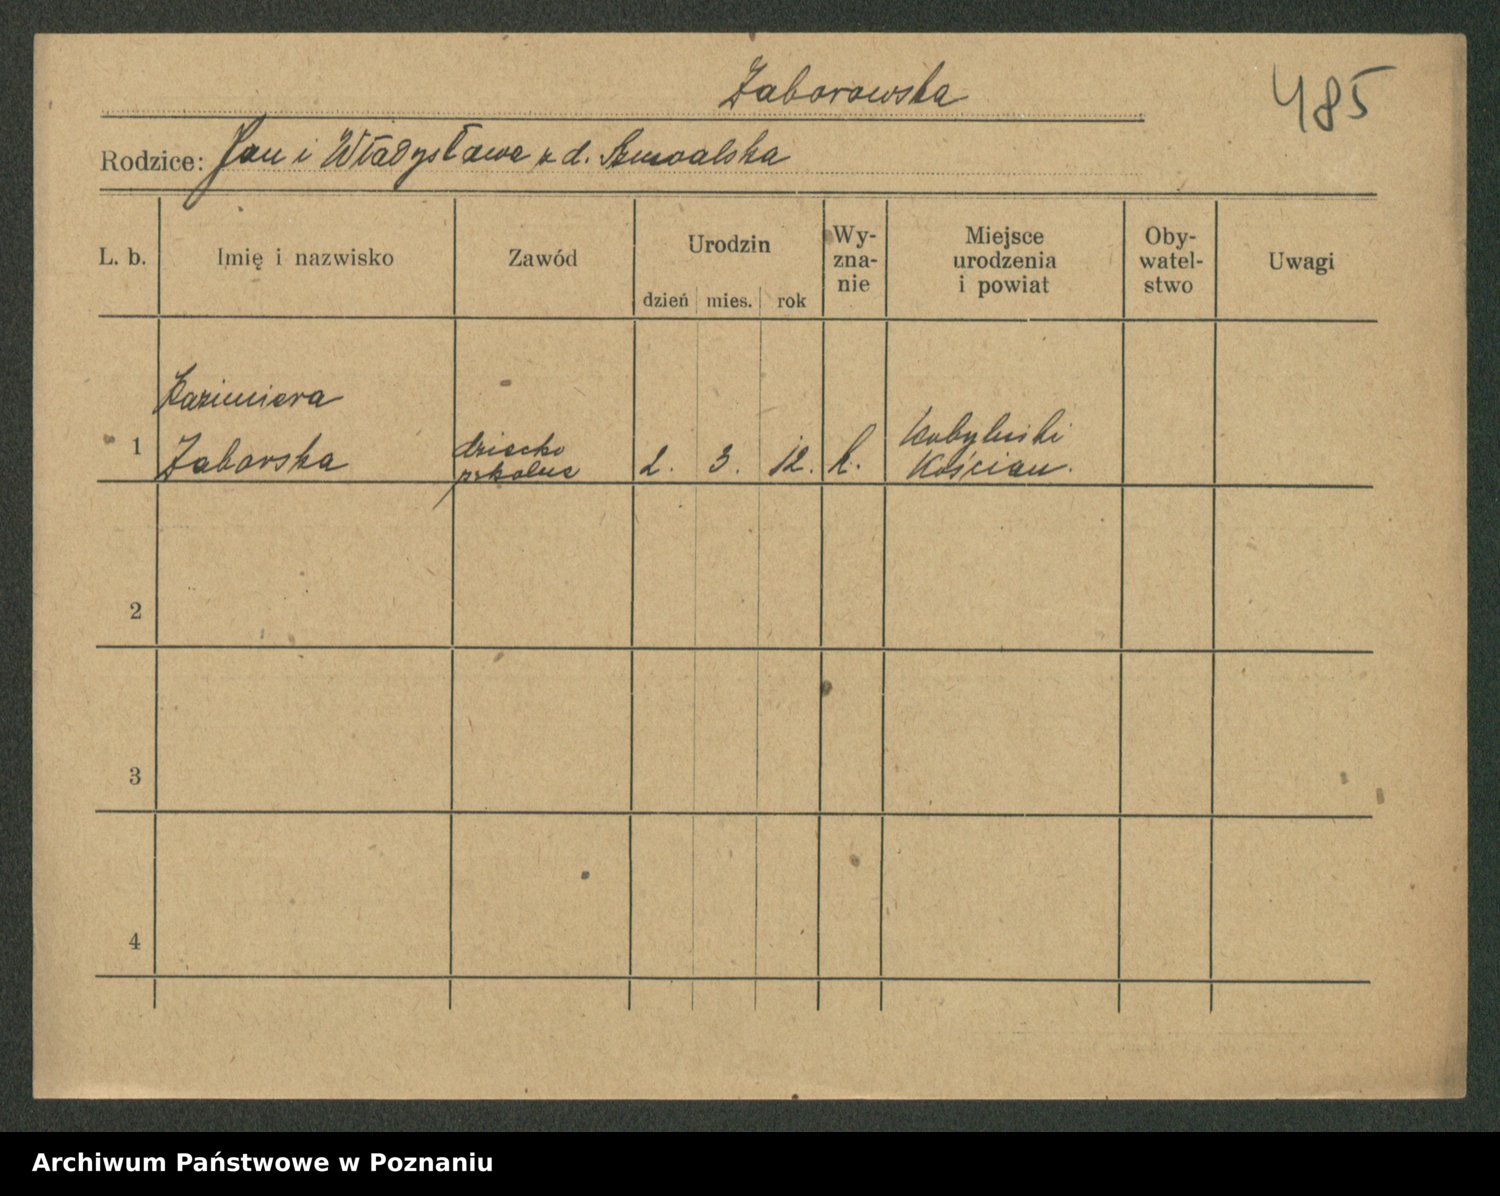 Zaborowska
485
Rodzice: Jan i Władysława z d. Szuwalska
L. b. Imię i nazwisko Zawód Urodzin dzień mies. rok Wy-
zna-
nie Miejsce
urodzenia
i powiat Oby-
watel-
stwo Uwagi
Kazimiera
1 Zaborska dziecko
szkolne 2. 3. 12. k. Kobylniki
Kościan.
2
3
4
Archiwum Państwowe w Poznaniu